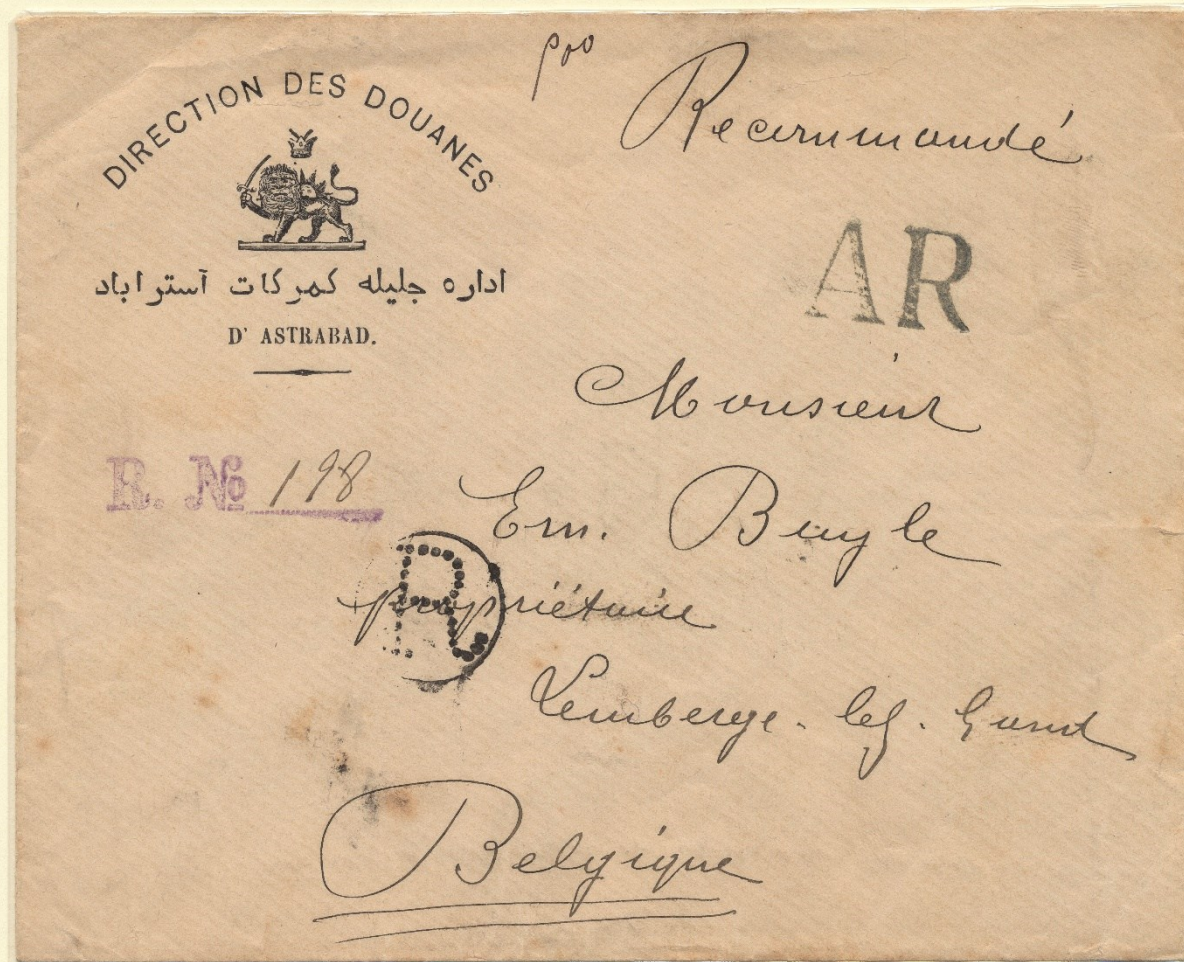 DIRECTION DES DOUANES
اداره جلیله کمرکات آستراباد
D' ASTRABAD.
Recommandé
AR
R. № 198
Monsieur
Em. Buyle
propriétaire
R
Lemberge. lez. Gand
Belgique